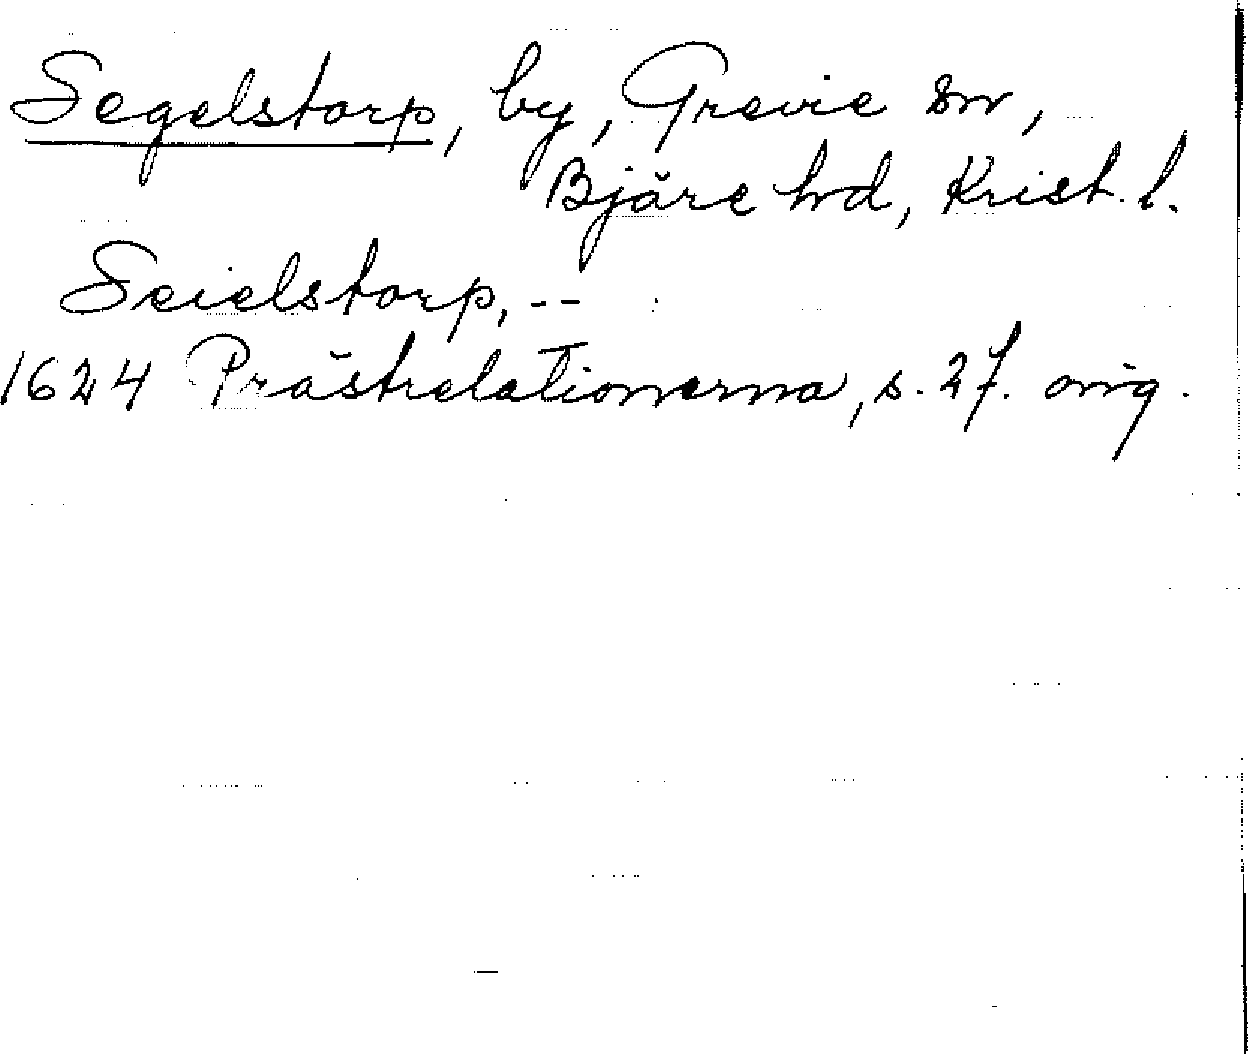 Segelstorp, by, Grevie sn,
Bjäre hd, Krist. l.
Seielstorp, --
1624 Prästrelationerna, s. 27. orig.